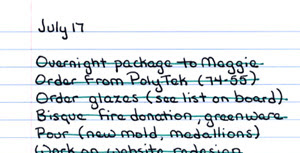 July 17
Overnight package to Maggie
Order from PolyTek (74-55)
Order glazes (see list on board)
Bisque fire donation, greenware
Pour (new mold, medallions)
Work on website redesign